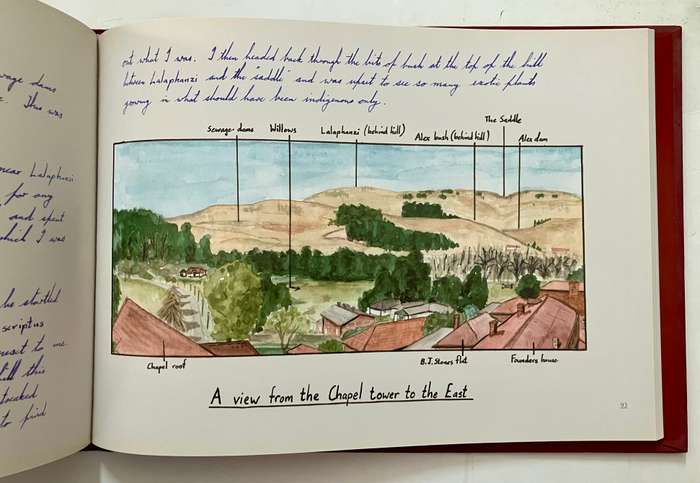 wage dams
This was
near Lalaphanzi
for any
and spent
which I was
he startled
scriptus
me
this
streaked
to find
out what I was. I then headed back through the bits of bush at the top of the hill
between Lalaphanzi and the "saddle" and was upset to see so many exotic plants
growing in what should have been indigenous only.
The Saddle
Sewage-dams Willows Lalaphanzi (behind hill) Alex bush (behind hill) Alex dam
Chapel roof B.J. Stones flat Founders house
A view from the Chapel tower to the East